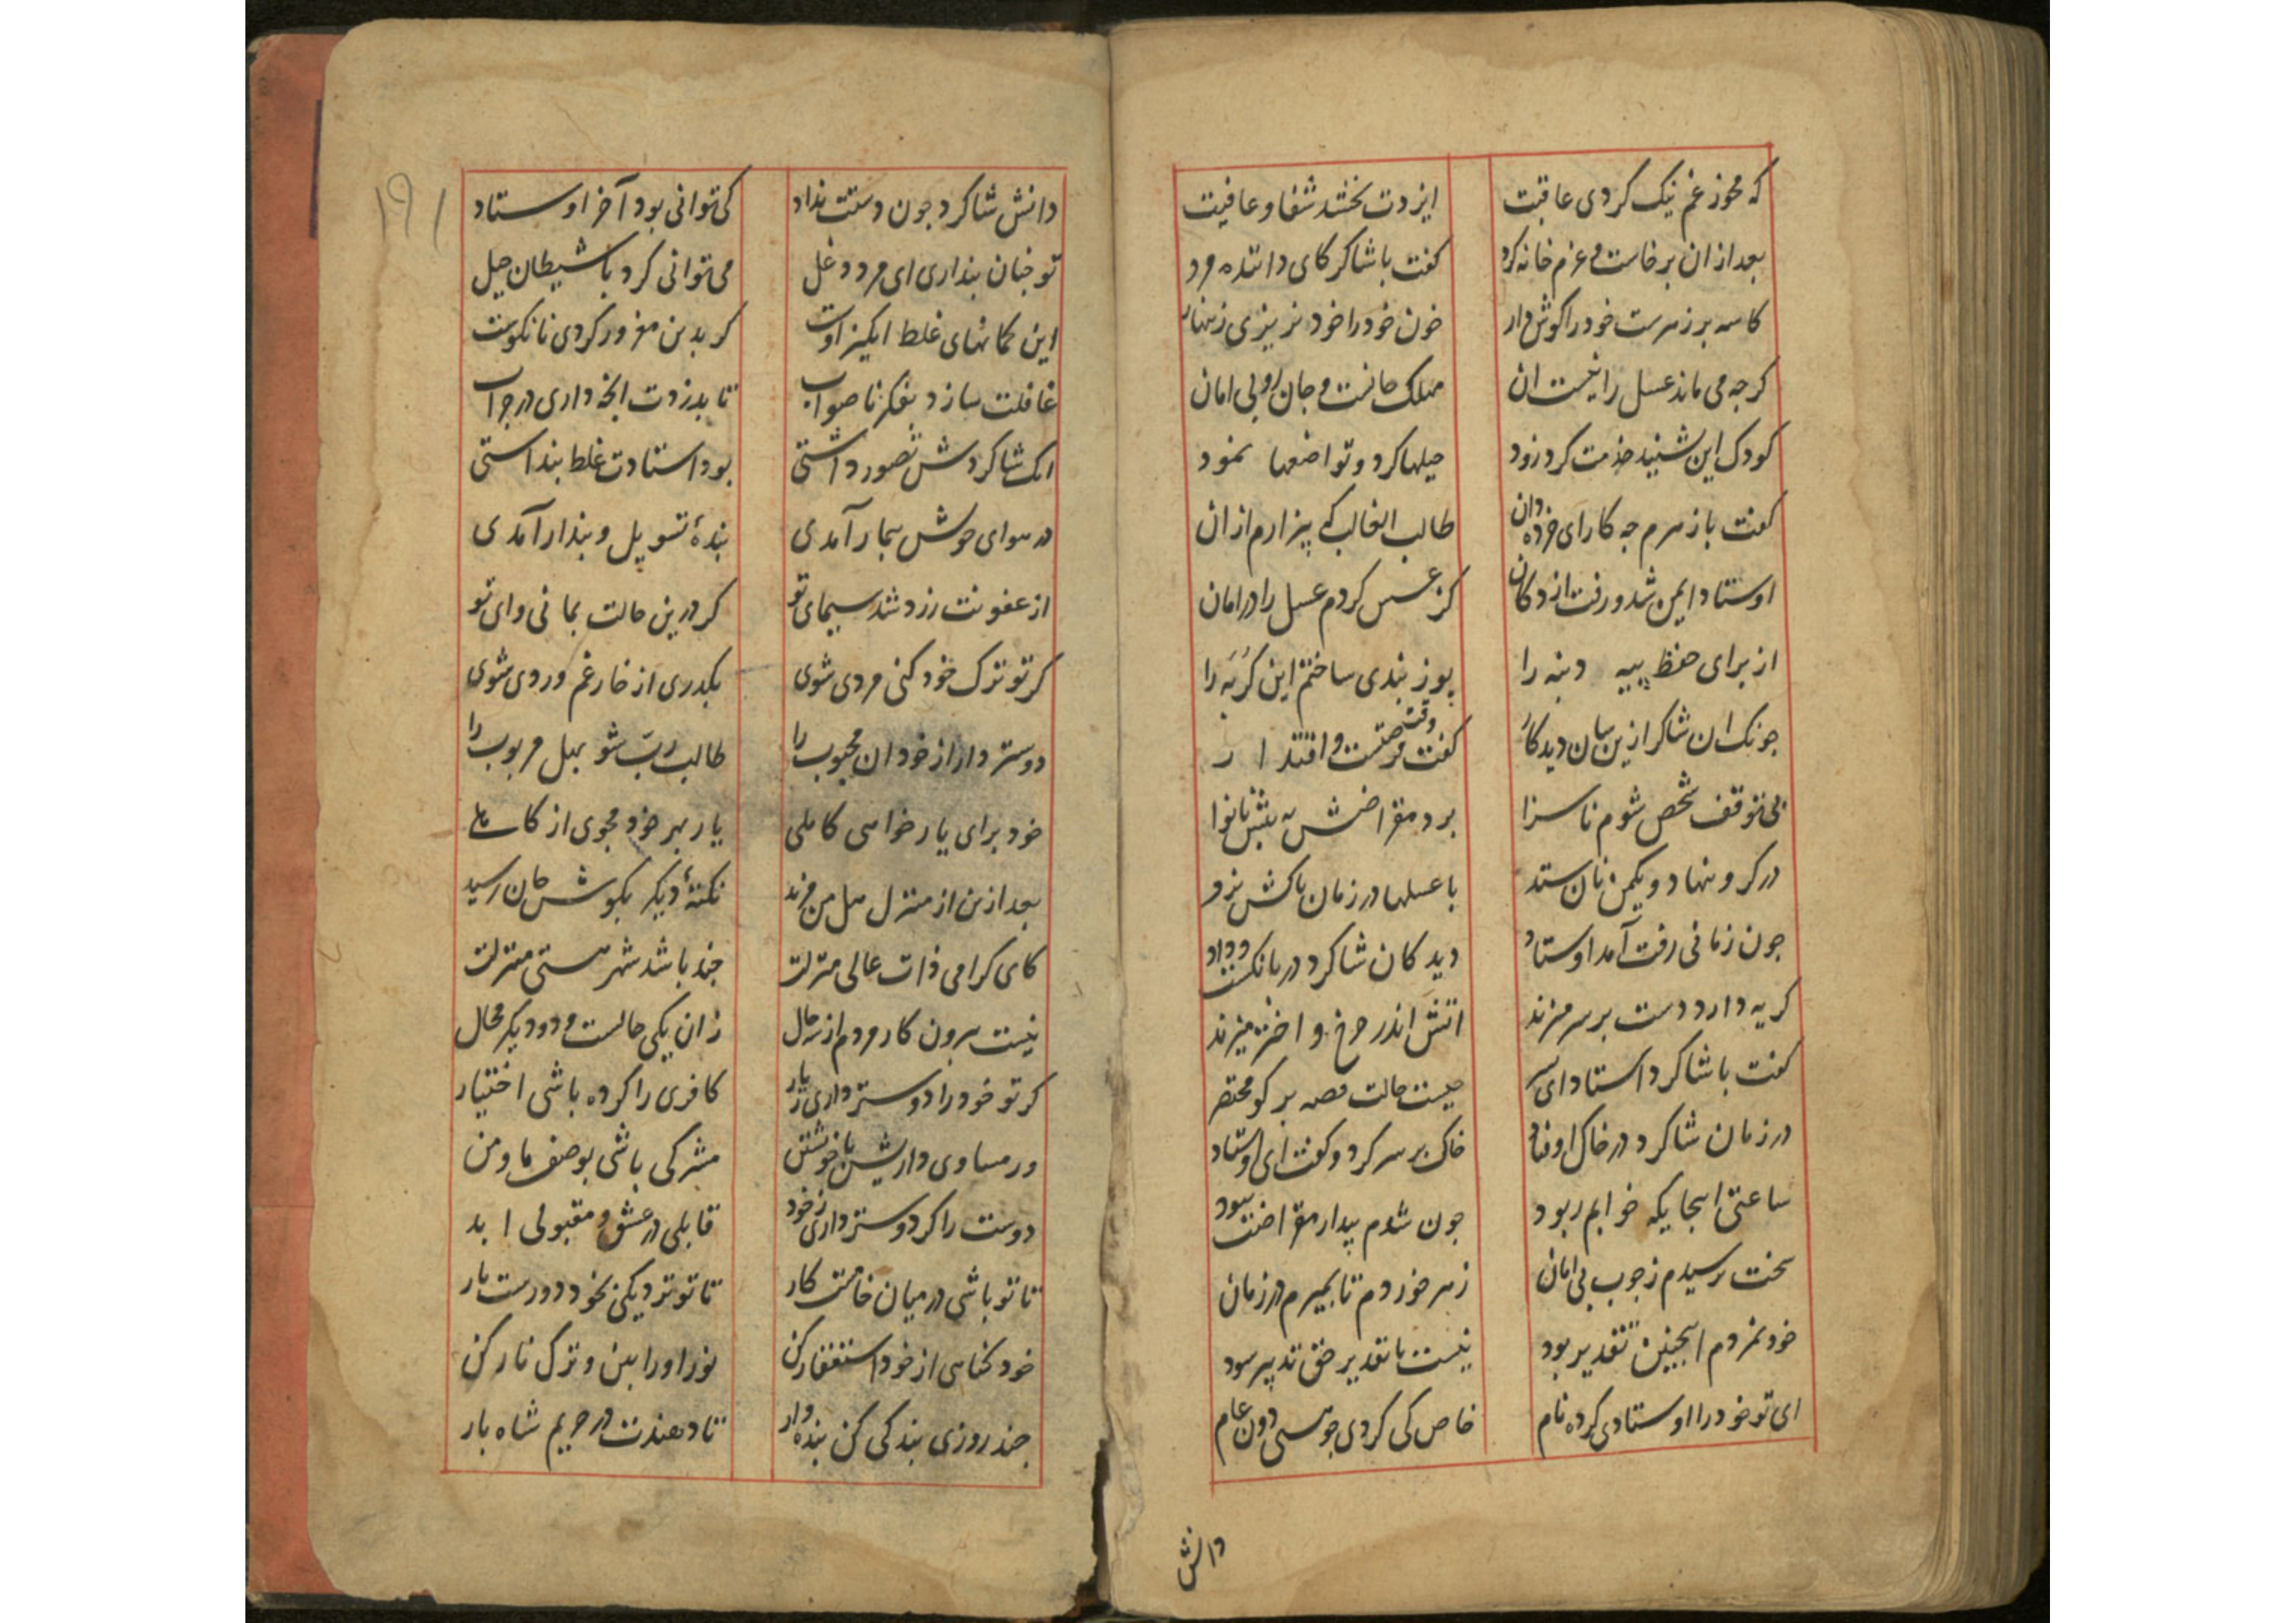 که مخور غم نیک کردی عاقبت ایزدت بخشد شفا و عافیت
بعد از ان برخاست و عزم خانه کرد کفت با شاکر کای داننده مرد
کاسه پر زهرست خود را کوش دار خون خود را خود نریزی زینهار
کرجه می ماند عسل را نیست ان مهلک جانست و جان را بی امان
کودک این شنید خدمت کرد زود حیلها کرد و تواضعها نمود
کفت با زهرم جه کار ای خرده دان طالب الغالب کی بیزارم از ان
اوستاد ایمن شد و رفت از دکان کز عسس کردم عسل را در امان
از برای حفظ پیه دنبه را پوز بندی ساختم این کربه را
جونک ان شاکر ازین سان دید کار کفت وقت فرصتست و اقتدار
بی توقف شخص شوم ناسزا برد مقراضش به پیش نانوا
در کرو بنهاد و یکمن نان ستد با عسلها در زمان پاکش بزد
جون زمانی رفت آمد اوستاد دید کان شاکرد در بانکست و داد
کریه دارد دست بر سر میزند اتش اندر جرخ و اختر میزند
کفت با شاکرد استاد ای پسر جیست حالت قصه بر کو مختصر
در زمان شاکرد در خاک اوفتاد خاک بر سر کرد و کفت ای اوستاد
ساعتی اینجایکه خوابم ربود جون شدم بیدار مقراضت نبود
سخت ترسیدم ز جوب بی امان زهر خوردم تا بمیرم در زمان
خود نمردم اینجنین تقدیر بود نیست با تقدیر حق تدبیر سود
ای تو خود را اوستادی کرده نام خاص کی کردی جو هستی دون عام
دانش
۱۹۱
دانش شاکرد جون دستت نداد کی توانی بود آخر اوستاد
تو جنان پنداری ای مرد دغل می توانی کرد با شیطان حیل
این کمانهای غلط انکیز اوست کر بدین مغرور کردی نانکوست
غافلت سازد بفکر ناصواب تا بدزدت انجه داری در جراب
انک شاکردش تصور داشتی بود استادت غلط پنداشتی
در هوای خویش بیمار آمدی بندهٔ تسویل و پندار آمدی
از عفونت زرد شد سیمای تو کر درین حالت بمانی وای تو
کر تو ترک خود کنی مردی شوی بکذری از خار غم وردی شوی
دوستر دار از خود ان محبوب را طالب ربّ شو بهل مربوب را
خود برای یار خواهی کاملی یار بهر خود مجوی از کاهلی
بعد ازین از منزل هل من مزید نکتهٔ دیکر بکوش جان رسید
کای کرامی ذات عالی منزلت جند باشد شهر هستی منزلت
نیست بیرون کار مردم از سه حال زان یکی حالست و دو دیکر محال
کر تو خود را دوستر داری ز یار کافری را کرده باشی اختیار
ور مساوی داریش با خویشتن مشرکی باشی بوصف ما و من
دوست را کر دوستر داری ز خود قابلی در عشق و مقبولی ابد
تا تو باشی در میان خامست کار تا تو نزدیکی بخود دورست یار
خود کناهی از خود استغفار کن نور او را بین و ترک نار کن
جند روزی بندکی کن بنده وار تا دهندت در حریم شاه بار